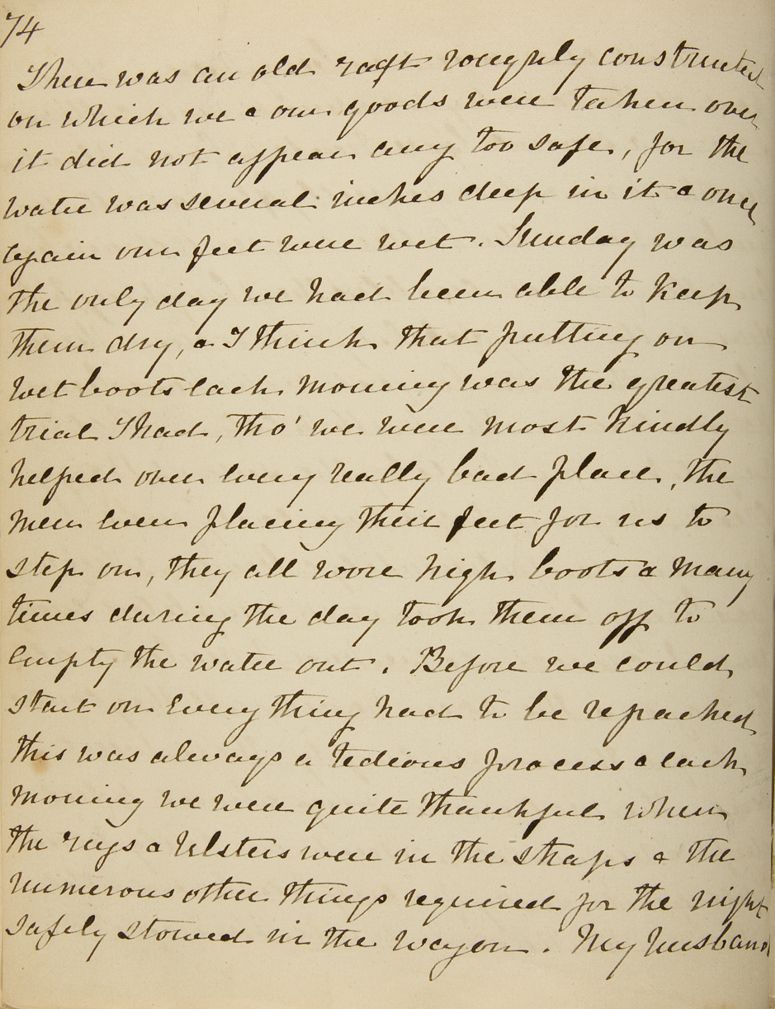 74
There was an old raft roughly constructed
on which we & our goods were taken over
it did not appear any too safe, for the
water was several inches deep in it & once
again our feet were wet. Sunday was
the only day we had been able to keep
them dry, & I think that putting on
wet boots each morning was the greatest
trial I had, tho' we were most kindly
helped over every really bad place, the
men even placing their feet for us to
step on, they all wore high boots & many
times during the day took them off to
empty the water out. Before we could
start on everything had to be repacked
this was always a tedious process & each
morning we were quite thankful when
the rugs & Ulsters were in the straps & the
numerous other things required for the night
safely stowed in the wagon. My husband